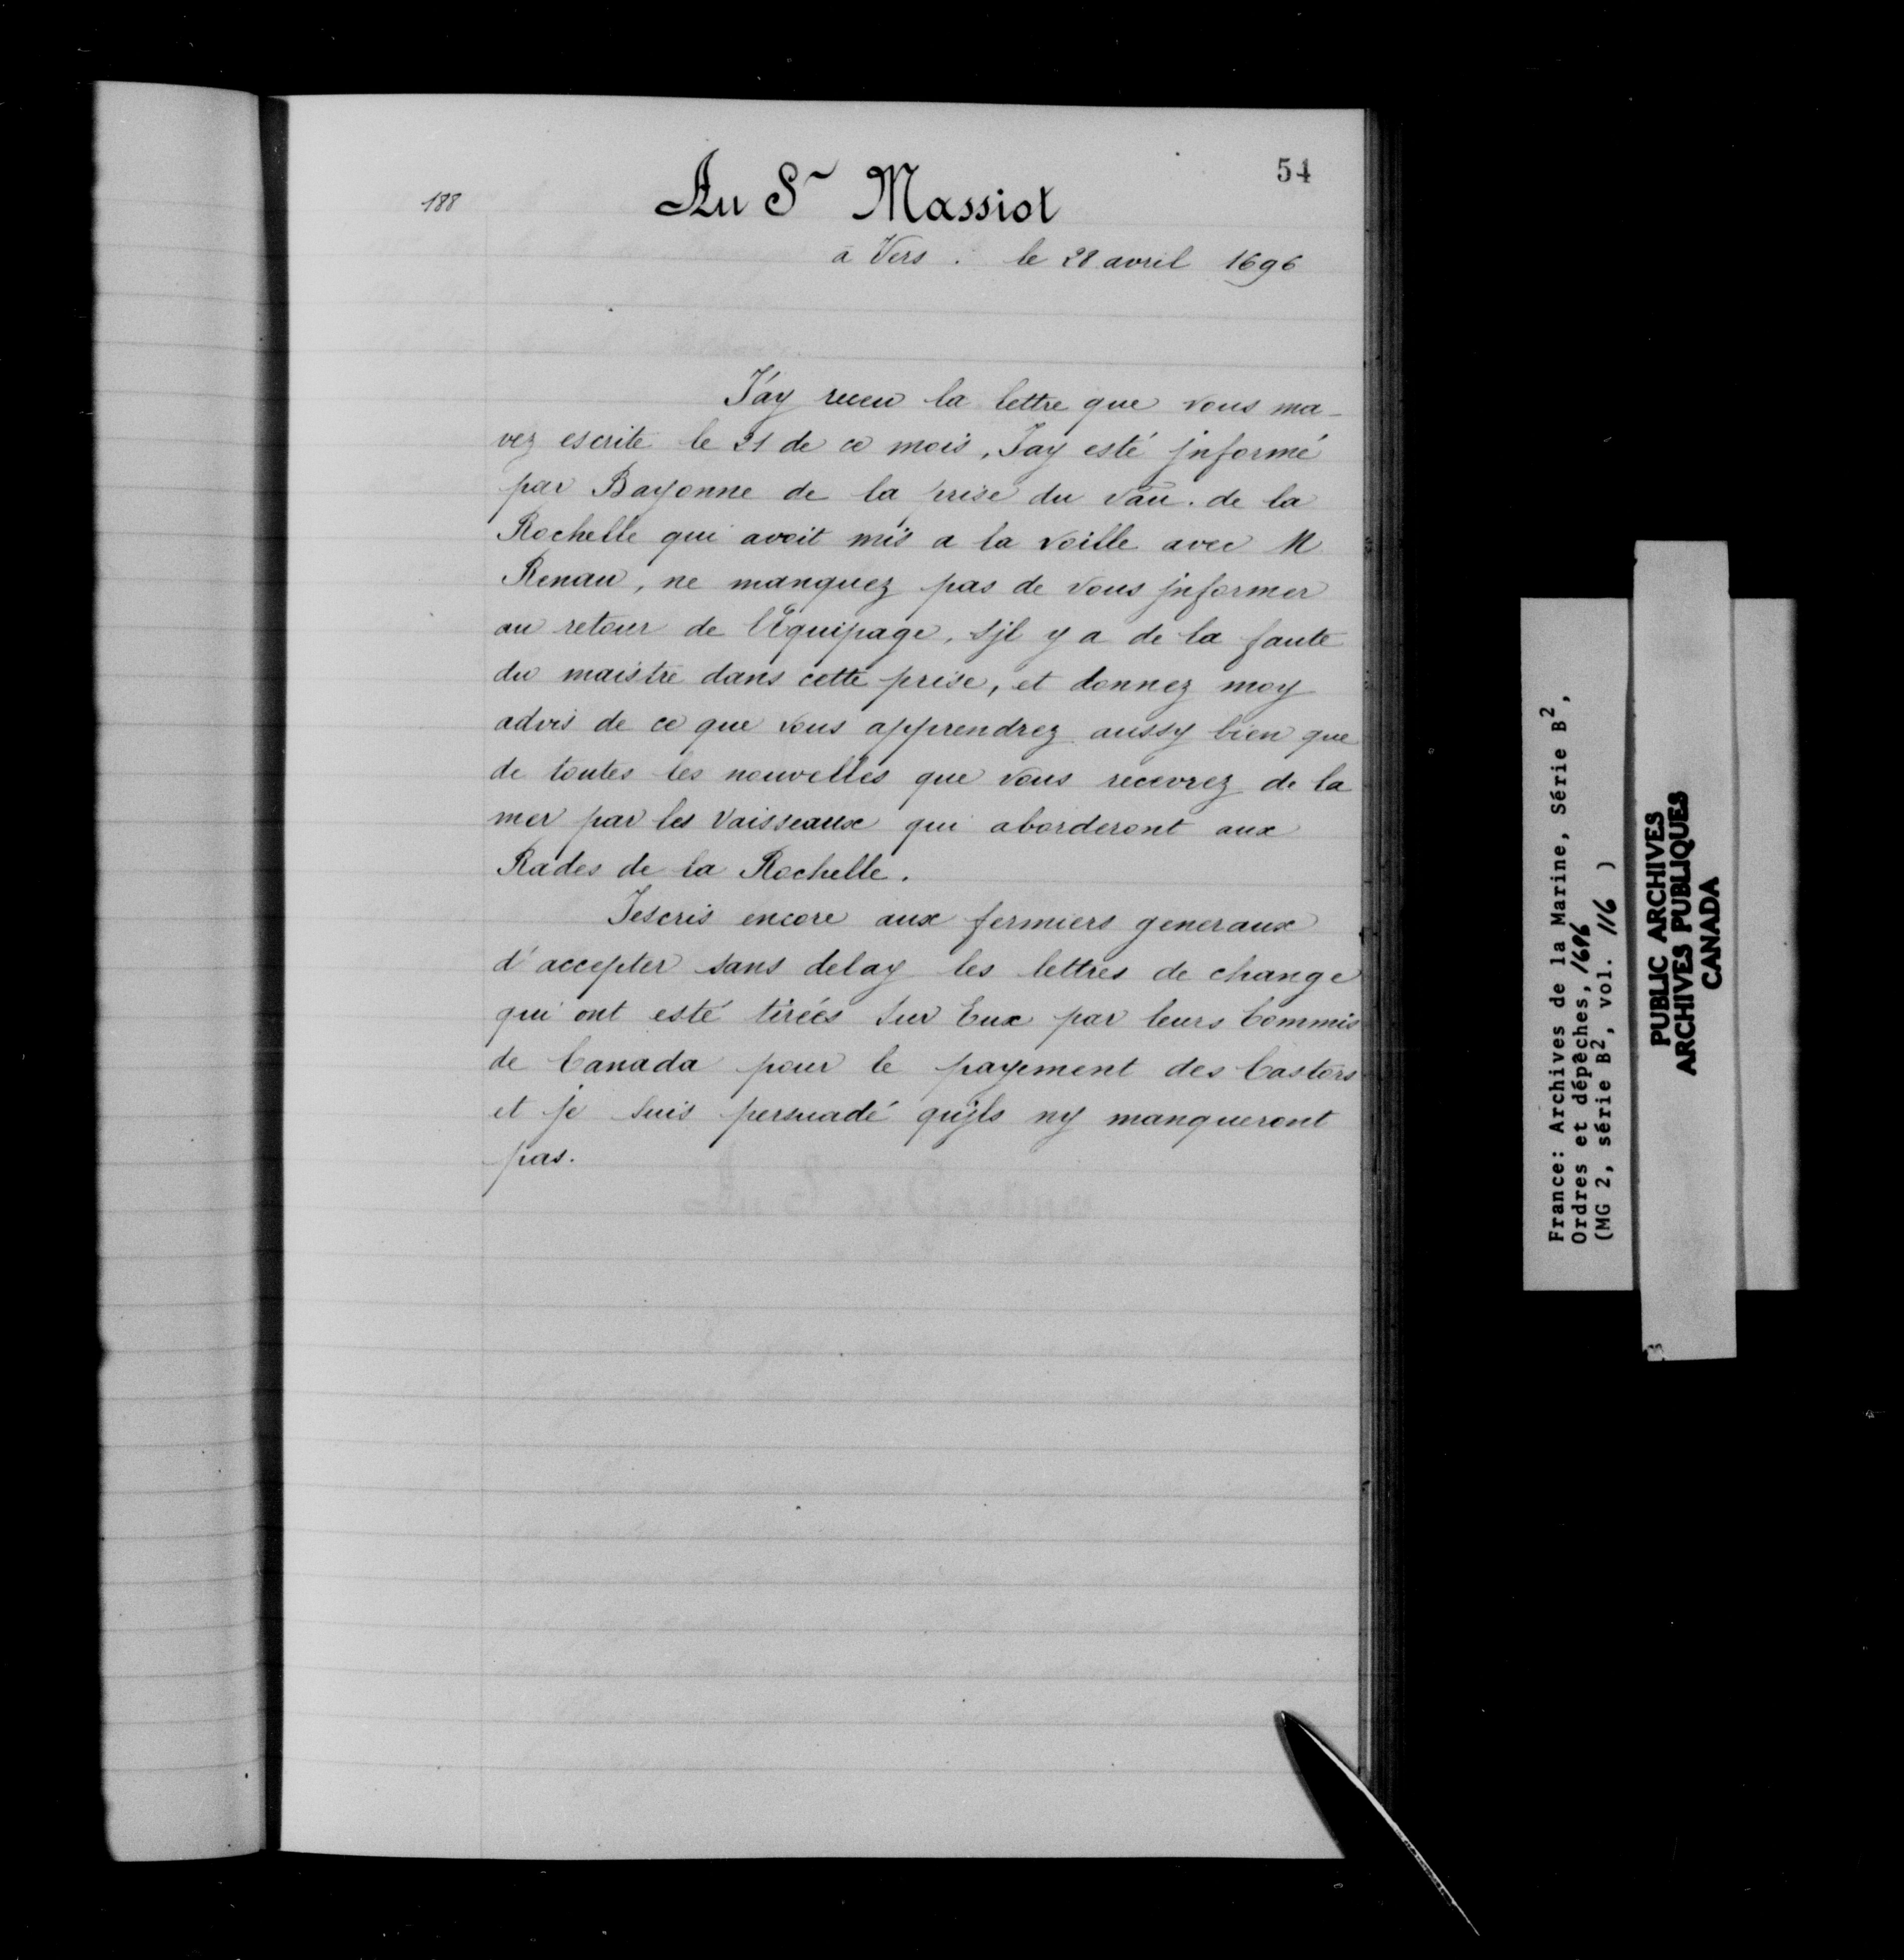 54
188
Au Sr Massiot
à Vers. le 28 avril 1696
J'ay receu la lettre que vous ma-
vez escrite le 21 de ce mois, Jay esté jnformé
par Bayonne de la prise du vau. de la
Rochelle qui avoit mis a la voille avec M
Renau, ne manquez pas de vous jnformer
au retour de l'Equipage, sjl y a de la faute
du maistre dans cette prise, et donnez moy
advis de ce que vous apprendrez aussy bien que
de toutes les nouvelles que vous recevrez de la
mer par les vaisseaux qui aborderont aux
Rades de la Rochelle.
Jescris encore aux fermiers generaux
d'accepter sans delay les lettres de change
qui ont esté tirées sur Eux par leurs Commis
de Canada pour le payement des Castors
et je suis persuadé qujls ny manqueront
pas.
France: Archives de la Marine, Série B2,
Ordres et dépêches, 1696
(MG 2, série B2, vol. 116 )
PUBLIC ARCHIVES
ARCHIVES PUBLIQUES
CANADA